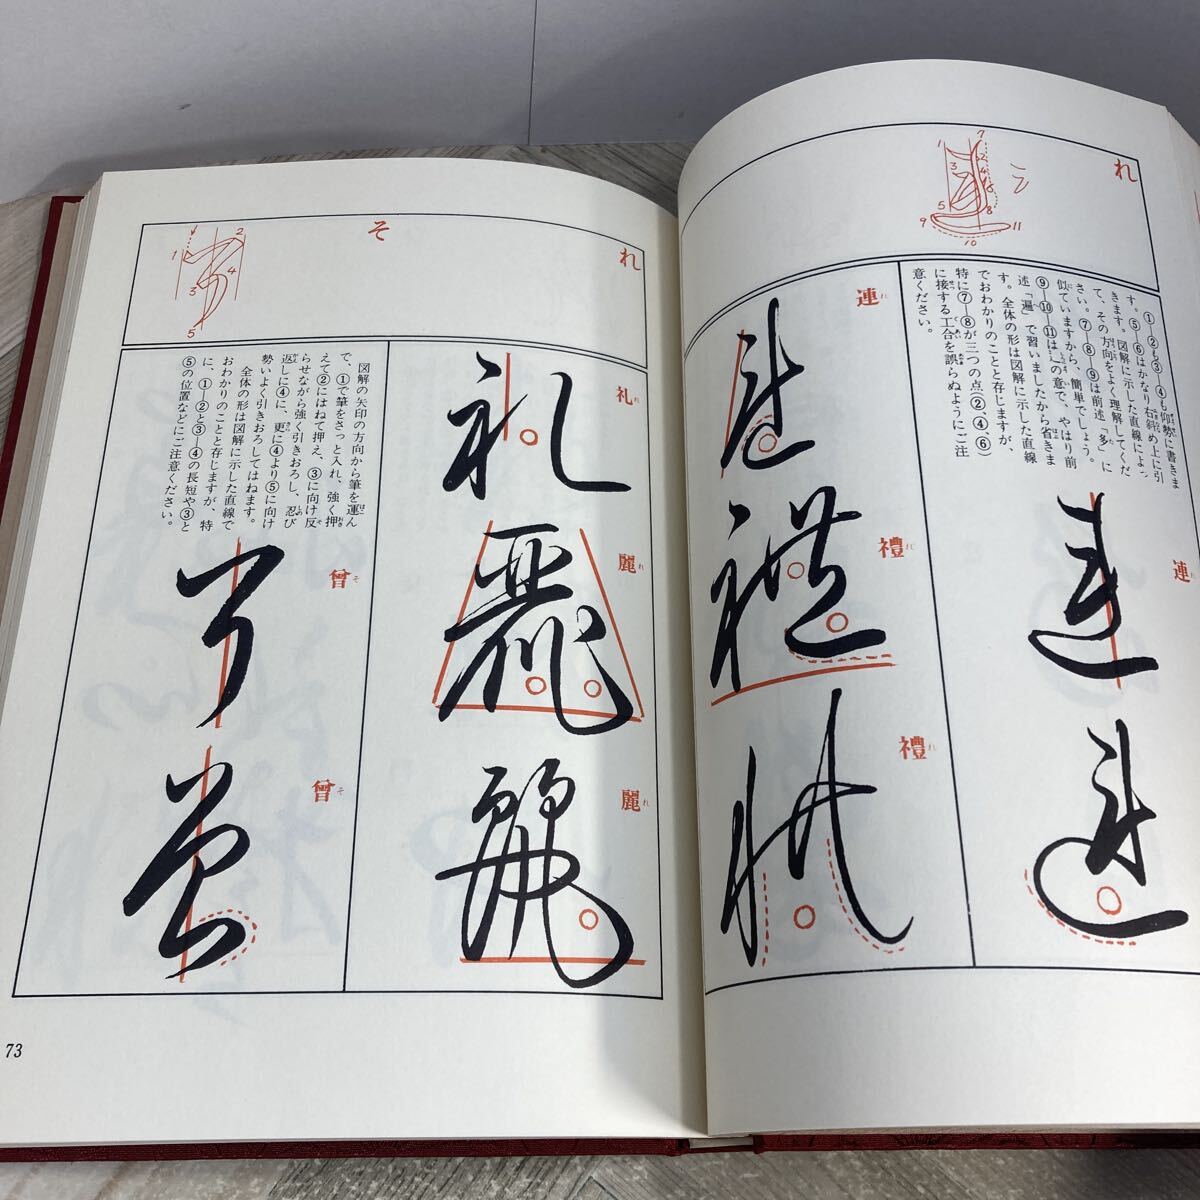 れ
1
2
3
4
5
7
8
9
10
11
①―②も③―④も仰勢に書きま
す。⑤―⑥はかなり右斜め上に引
きます。図解に示した直線によっ
て、その方向をよく理解してくだ
さい。⑦―⑧―⑨は前述「多」に
似ていますから、簡単でしょう。
⑨―⑩―⑪は「辶」の意で、やはり前
述「遍」で習いましたから省きま
す。全体の形は図解に示した直線
でおわかりのことと存じますが、
特に⑦―⑧が三つの点(②、④、⑥)
に接する工合を誤らぬようにご注
意ください。
連れ
連れ
禮れ
禮れ
れ
礼れ
麗れ
麗れ
そ
1
2
3
4
5
図解の矢印の方向から筆を運ん
で、①で筆をさっと入れ、強く押
えて②にはねて押え、③に向け反
らせながら強く引きおろし、忍び
返しに④に、更に④より⑤に向け
勢いよく引きおろしてはねます。
全体の形は図解に示した直線で
おわかりのことと存じますが、特
に、①―②と③―④の長短や③と
⑤の位置などにご注意ください。
曾そ
曾そ
73